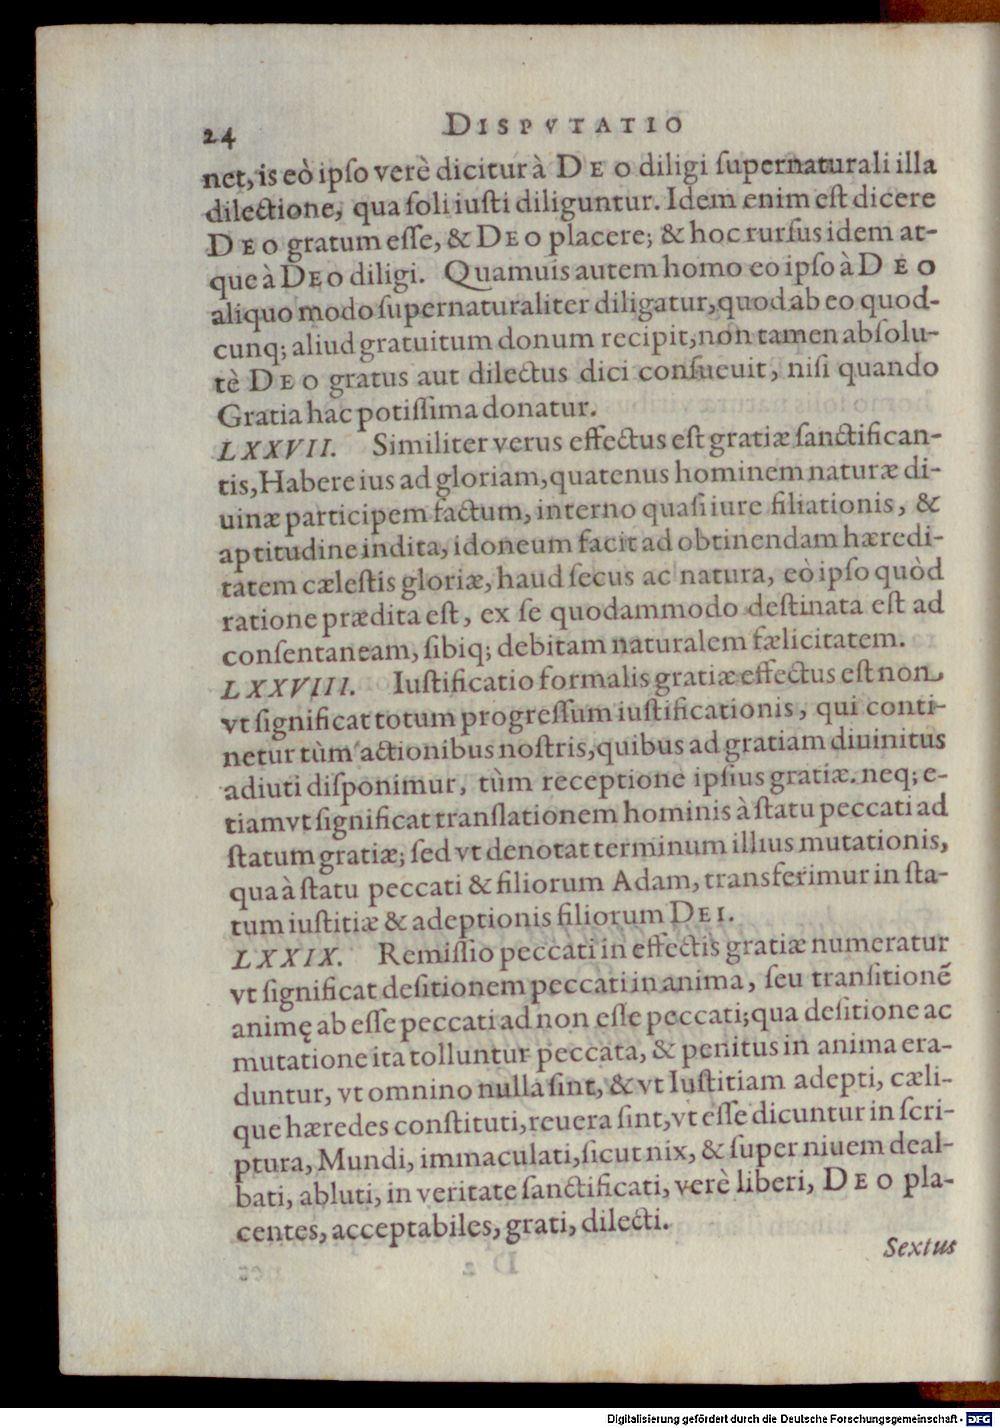 24 DISPVTATIO
net, is eò ipso verè dicitur à DEO diligi supernaturali illa
dilectione, qua soli iusti diliguntur. Idem enim est dicere
DEO gratum esse, & DEO placere; & hoc rursus idem at-
que à DEO diligi. Quamuis autem homo eo ipso à DEO
aliquo modo supernaturaliter diligatur, quod ab eo quod-
cunq; aliud gratuitum donum recipit, non tamen absolu-
tè DEO gratus aut dilectus dici consueuit, nisi quando
Gratia hac potissima donatur.
LXXVII. Similiter verus effectus est gratiæ sanctifican-
tis, Habere ius ad gloriam, quatenus hominem naturæ di-
uinæ participem factum, interno quasi iure filiationis, &
aptitudine indita, idoneum facit ad obtinendam hæredi-
tatem cælestis gloriæ, haud secus ac natura, eò ipso quòd
ratione prædita est, ex se quodammodo destinata est ad
consentaneam, sibiq; debitam naturalem fælicitatem.
LXXVIII. Iustificatio formalis gratiæ effectus est non
vt significat totum progressum iustificationis, qui conti-
netur tùm actionibus nostris, quibus ad gratiam diuinitus
adiuti disponimur, tùm receptione ipsius gratiæ. neq; e-
tiam vt significat translationem hominis à statu peccati ad
statum gratiæ; sed vt denotat terminum illius mutationis,
qua à statu peccati & filiorum Adam, transferimur in sta-
tum iustitiæ & adeptionis filiorum DEI.
LXXIX. Remissio peccati in effectis gratiæ numeratur
vt significat desitionem peccati in anima, seu transitionẽ
animę ab esse peccati ad non esse peccati; qua desitione ac
mutatione ita tolluntur peccata, & penitus in anima era-
duntur, vt omnino nulla sint, & vt Iustitiam adepti, cæli-
que hæredes constituti, reuera sint, vt esse dicuntur in scri-
ptura, Mundi, immaculati, sicut nix, & super niuem deal-
bati, abluti, in veritate sanctificati, verè liberi, DEO pla-
centes, acceptabiles, grati, dilecti.
Sextus
Digitalisierung gefördert durch die Deutsche Forschungsgemeinschaft - DFG